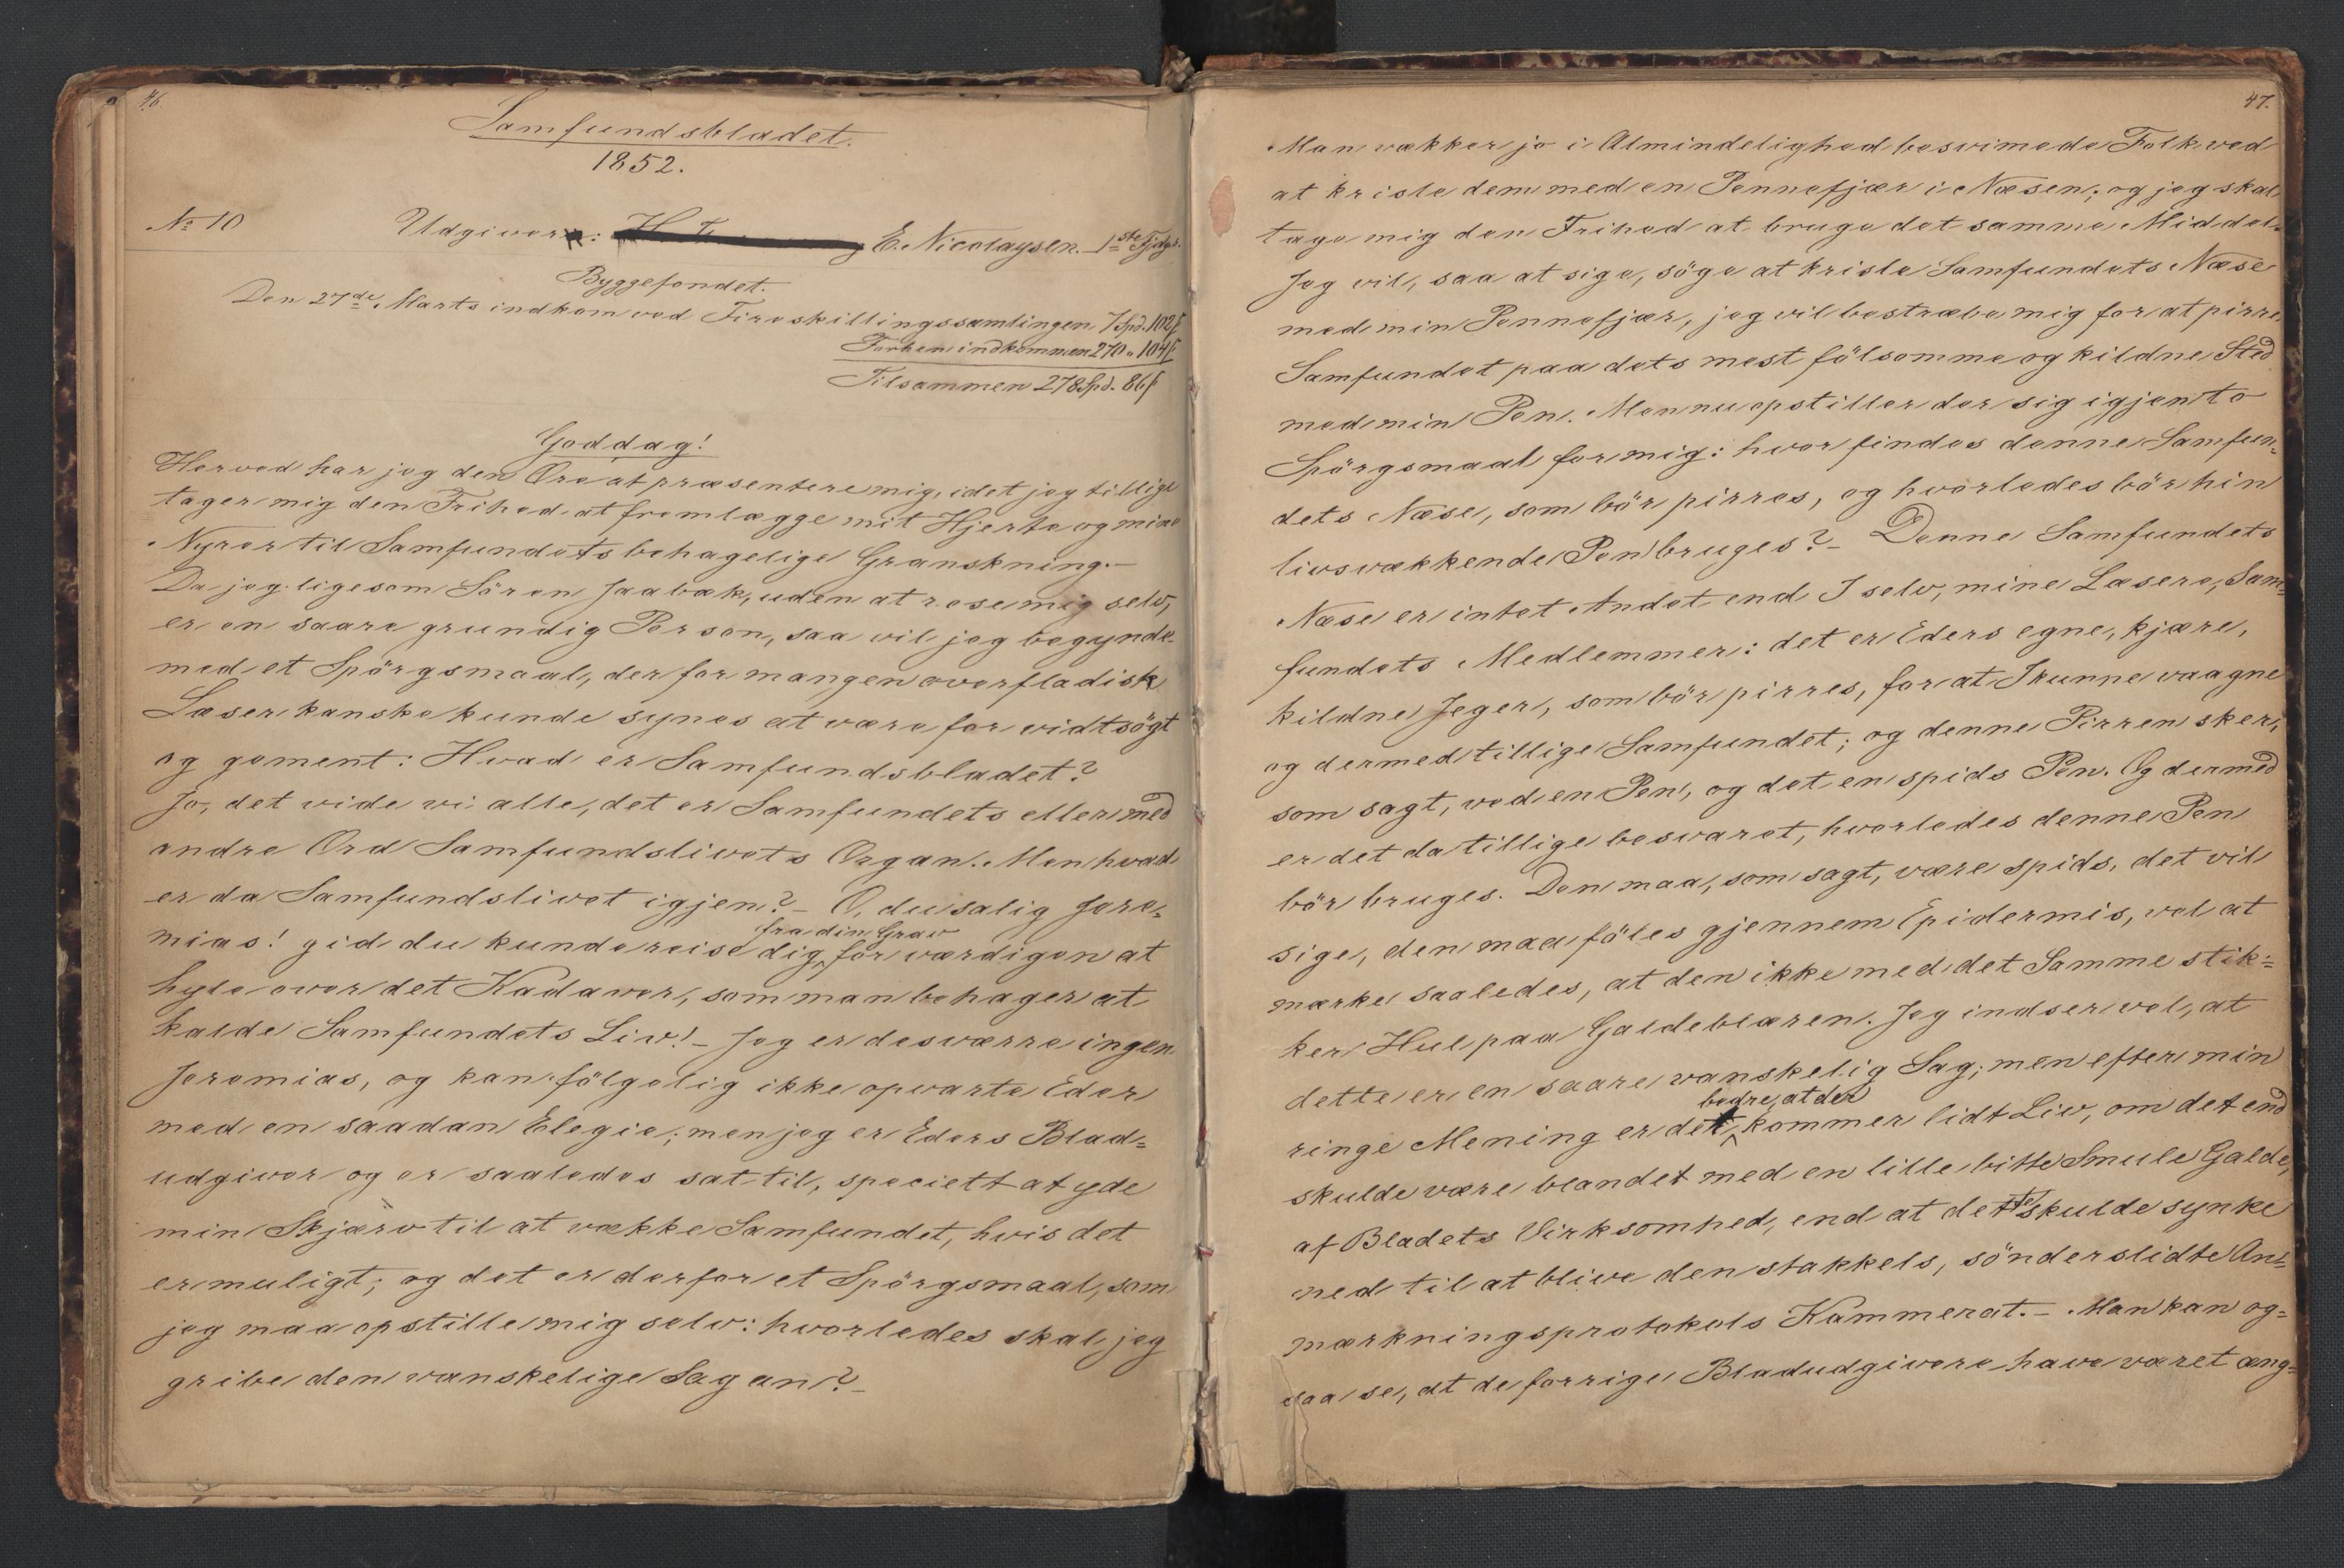 46.
Samfundsbladet.
1852.
No 10 Udgiver: E. Nicolaysen. 1ste Fjdgs.
Byggefondet.
Den 27de Marts indkom ved Fireskillingssamlingen 7 Spd. 102 ß
Forhen indkommen 270 " 104 ß
Tilsammen 278 Spd. 86 ß
Goddag!
Herved har jeg den Ære at præsentere mig, idet jeg tillige
tager mig den Frihed at fremlægge mit Hjerte og mine
Nyrer til Samfundets behagelige Granskning.—
Da jeg ligesom Sören Jaabæk, uden at rose mig selv,
er en saare grundig Person, saa vil jeg begynde
med et Spörgsmaal, der for mangen overfladisk
Læser kanske kunde synes at være for vidtsögt
og gement: Hvad er Samfundsbladet?
Jo, det vide vi alle, det er Samfundets eller med
andre Ord Samfundslivets Organ. Men hvad
er da Samfundslivet igjen?— O, du salig Jere-
mias! gid du kunde reise dig fra din Grav for værdigen at
hyle over det Kadaver, som man behager at
kalde Samfundets Liv!— Jeg er desværre ingen
Jeremias, og kan fölgelig ikke opvarte Eder
med en saadan Elegie; men jeg er Eders Blad-
udgiver og er saaledes sat til, specielt at yde
min Skjærv til at vække Samfundet, hvis det
er muligt; og det er derfor et Spörgsmaal, som
jeg maa opstille mig selv: hvorledes skal jeg
gribe den vanskelige Sag an?—
47.
Man vækker jo i Almindelighed besvimede Folk ved
at kriste dem med en Pennefjær i Næsen; og jeg skal
tage mig den Frihed at bruge det samme Middel.
Jeg vil, saa at sige, söge at kriste Samfundets Næse
med min Pennefjær, jeg vil bestræbe mig for at pirre
Samfundet paa dets mest fölsomme og kildne Sted
med min Pen. Men nu opstiller der sig igjen to
Spörgsmaal for mig: hvor findes denne Samfun-
dets Næse, som bör pirres, og hvorledes bör hin
livsvækkende Pen bruges?— Denne Samfundets
Næse er intet Andet end I selv, mine Læsere, Sam-
fundets Medlemmer: det er Eders egne, kjære,
kildne Jeger, som bör pirres, for at I kunne vaagne
og dermed tillige Samfundet; og denne Pirren sker,
som sagt, ved en Pen, og det en spids Pen. Og dermed
er det da tillige besvaret, hvorledes denne Pen
bör bruges. Den maa, som sagt, være spids, det vil
sige, den maa föles gjennem Epidermis, vel at
mærke saaledes, at den ikke med det Samme stik-
ker Hul paa Galdeblæren. Jeg indser vel, at
dette er en saare vanskelig Sag; men efter min
ringe Mening er det bedre, at der kommer lidt Liv, om det end
skulde være blandet med en lille bitte Smule Galde,
af Bladets Virksomhed, end at dette skulde synke
ned til at blive den stakkels, sönderslidte An-
mærkningsprotokols Kammerat.— Man kan og-
saa se, at de forrige Bladudgivere have været æng-